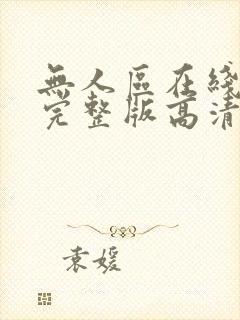 無人區在綫
完整版高清
袁媛